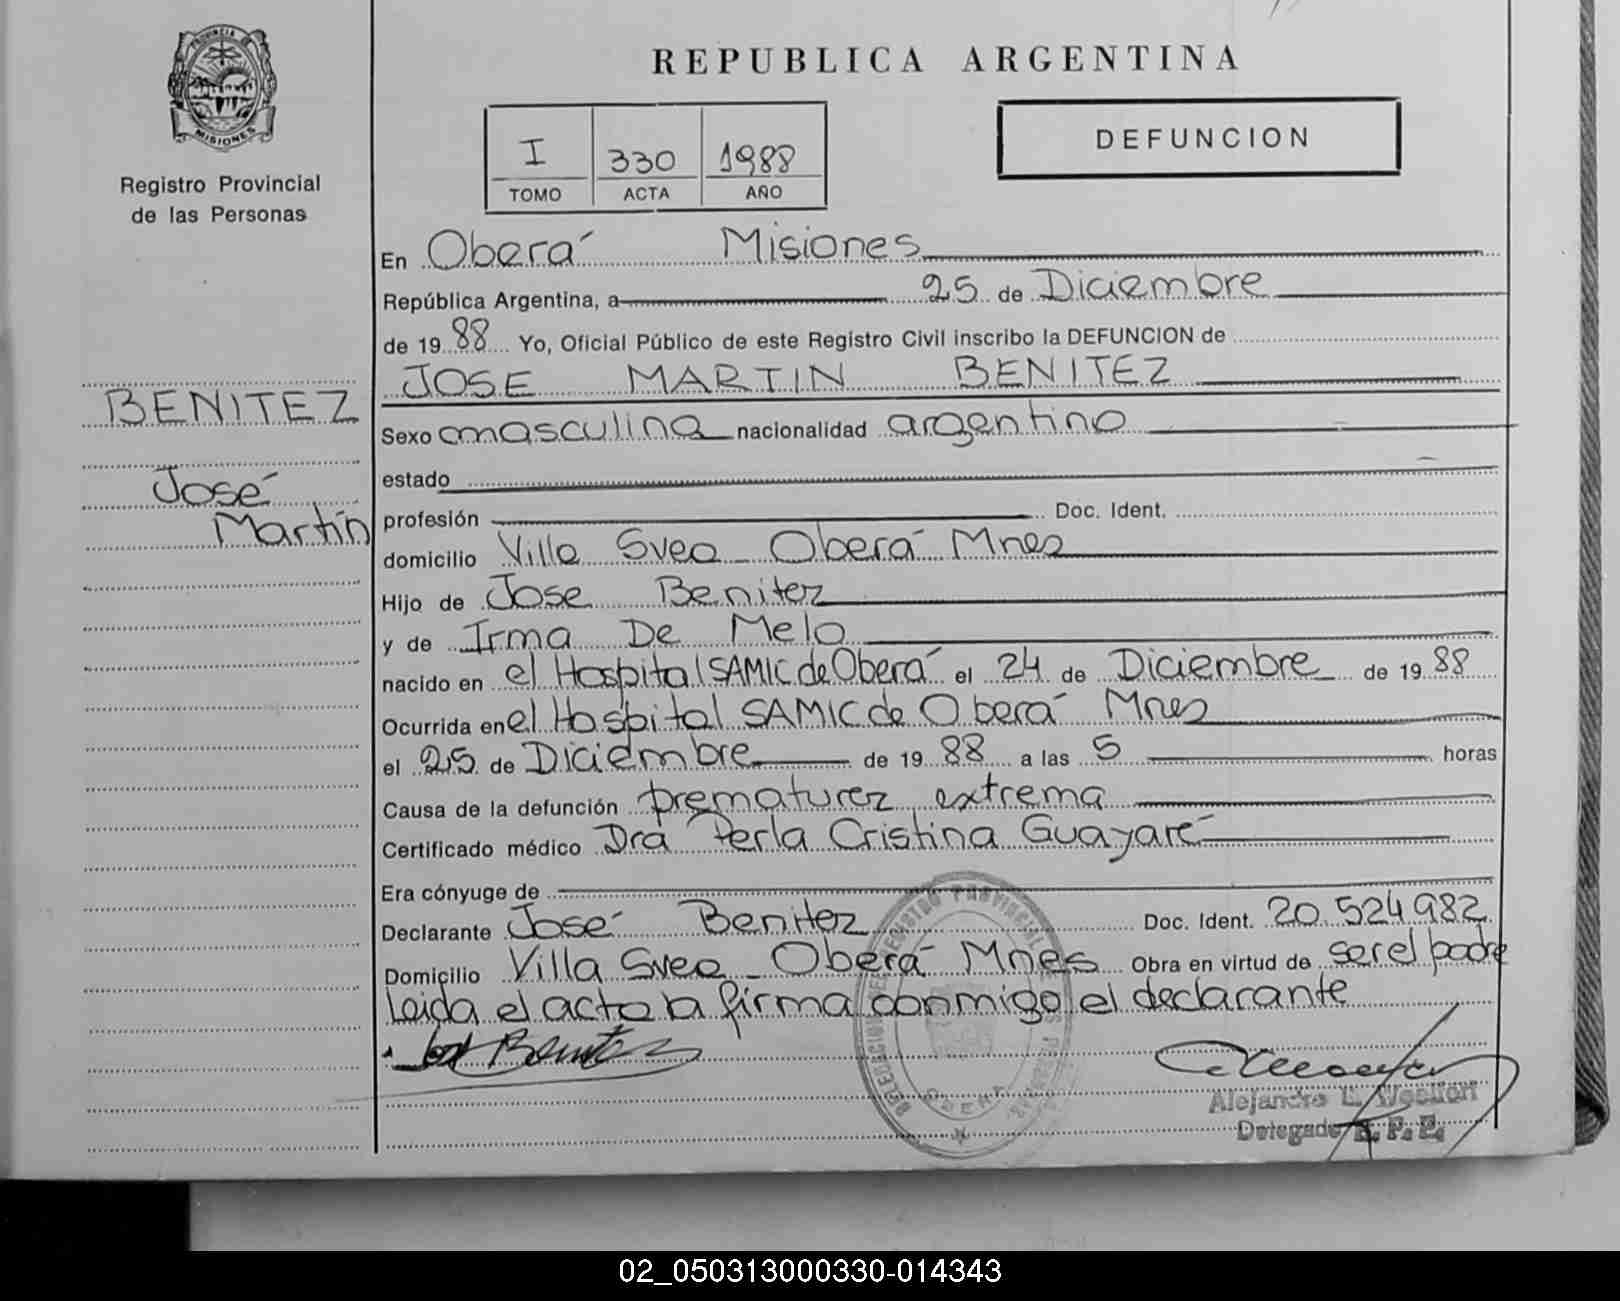 PROVINCIA DE
MISIONES
Registro Provincial
de las Personas
BENITEZ
José
Martín
REPUBLICA ARGENTINA
I 330 1988
TOMO ACTA AÑO
DEFUNCION
En Oberá Misiones
República Argentina, a 25 de Diciembre
de 19 88 Yo, Oficial Público de este Registro Civil inscribo la DEFUNCION de
JOSE MARTIN BENITEZ
Sexo masculino nacionalidad argentino
estado
profesión Doc. Ident.
domicilio Villa Svea Oberá Mnes
Hijo de Jose Benitez
y de Irma De Melo
nacido en el Hospital SAMIC de Oberá el 24 de Diciembre de 19 88
Ocurrida en el Hospital SAMIC de Oberá Mnes
el 25 de Diciembre de 19 88 a las 5 horas
Causa de la defunción prematurez extrema
Certificado médico Dra Perla Cristina Guayaré
Era cónyuge de
Declarante José Benitez Doc. Ident. 20.524.982
Domicilio Villa Svea - Oberá Mnes Obra en virtud de ser el padre
Leida el acta la firma conmigo el declarante
José Benitez
REGISTRO PROVINCIAL DE
OBERA
Alejandro
Delegado R. P. P.
02_050313000330-014343